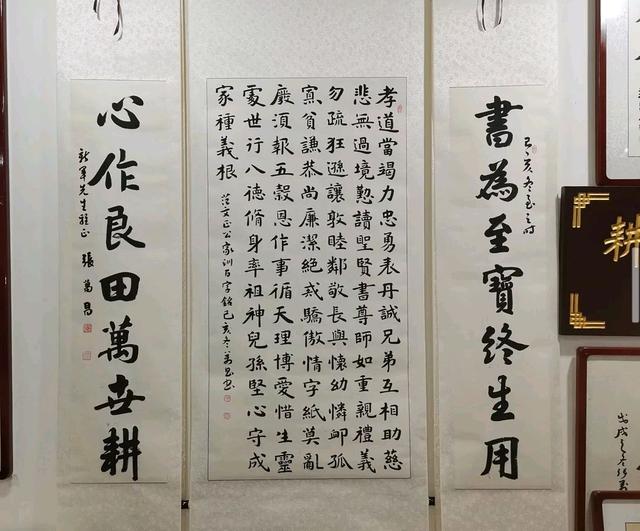 書為至寶終生用
己亥冬至之時
孝道當竭力忠勇表丹誠兄弟互相助慈
悲無過境懃讀聖賢書尊師如重親禮義
勿疏狂遜讓敦睦鄰敬長與懷幼憐卹孤
寡貧謙恭尚廉潔絕戒驕傲情字紙莫亂
廢須報五穀恩作事循天理博愛惜生靈
處世行八德脩身率祖神兒孫堅心守成
家種義根
范文正公家訓百字銘己亥冬萬昌書
心作良田萬世耕
新軍先生雅正
張萬昌
耕